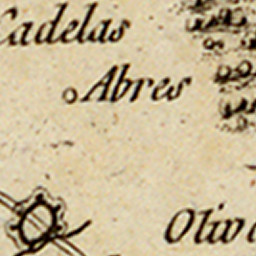 Cadelas
Abres
Oliv